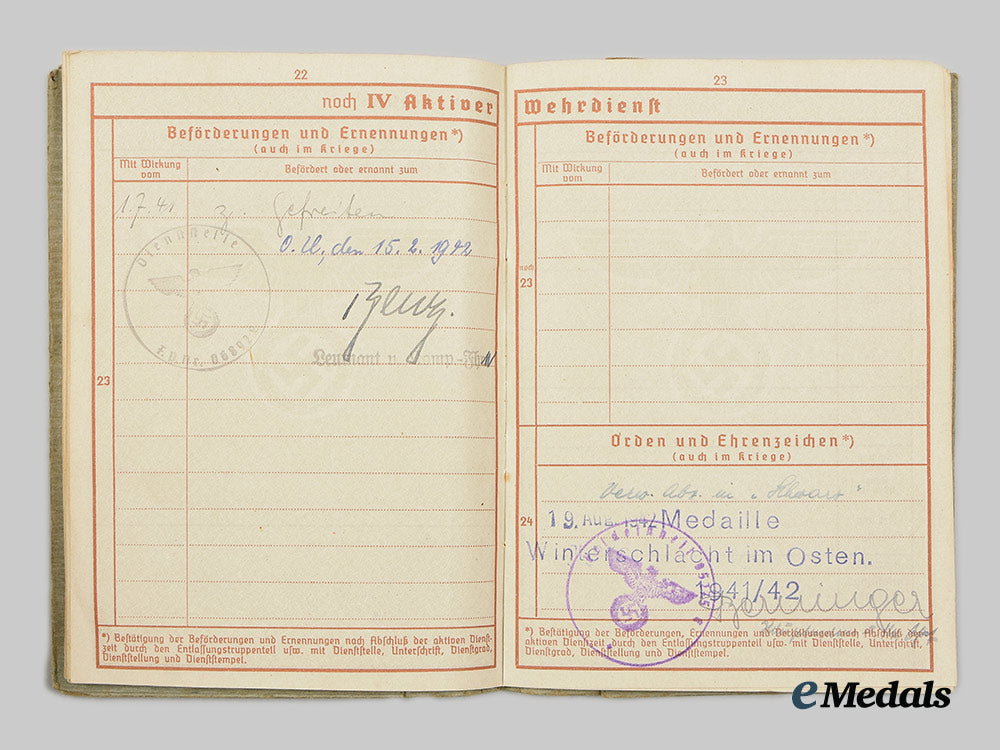 22
noch IV Aktiver
Beförderungen und Ernennungen*)
(auch im Kriege)
Mit Wirkung vom
Befördert oder ernannt zum
1.7.41 z. Gefreiten
O.U., den 15.2.1942
Dienststelle
F.P.Nr.
Leutnant u. Komp.-
23
*) Bestätigung der Beförderungen und Ernennungen nach Abschluß der aktiven Dienst-
zeit durch den Entlassungstruppenteil usw. mit Dienststelle, Unterschrift, Dienstgrad,
Dienststellung und Dienststempel.
23
Wehrdienst
Beförderungen und Ernennungen*)
(auch im Kriege)
Mit Wirkung vom
Befördert oder ernannt zum
noch
23
Orden und Ehrenzeichen*)
(auch im Kriege)
Verw. Abz. in „Schwarz"
24
19. Aug. 1942 Medaille
Winterschlacht im Osten.
1941/42
*) Bestätigung der Beförderungen, Ernennungen und Verleihungen nach Abschluß der
aktiven Dienstzeit durch den Entlassungstruppenteil usw. mit Dienststelle, Unterschrift,
Dienstgrad, Dienststellung und Dienststempel.
eMedals